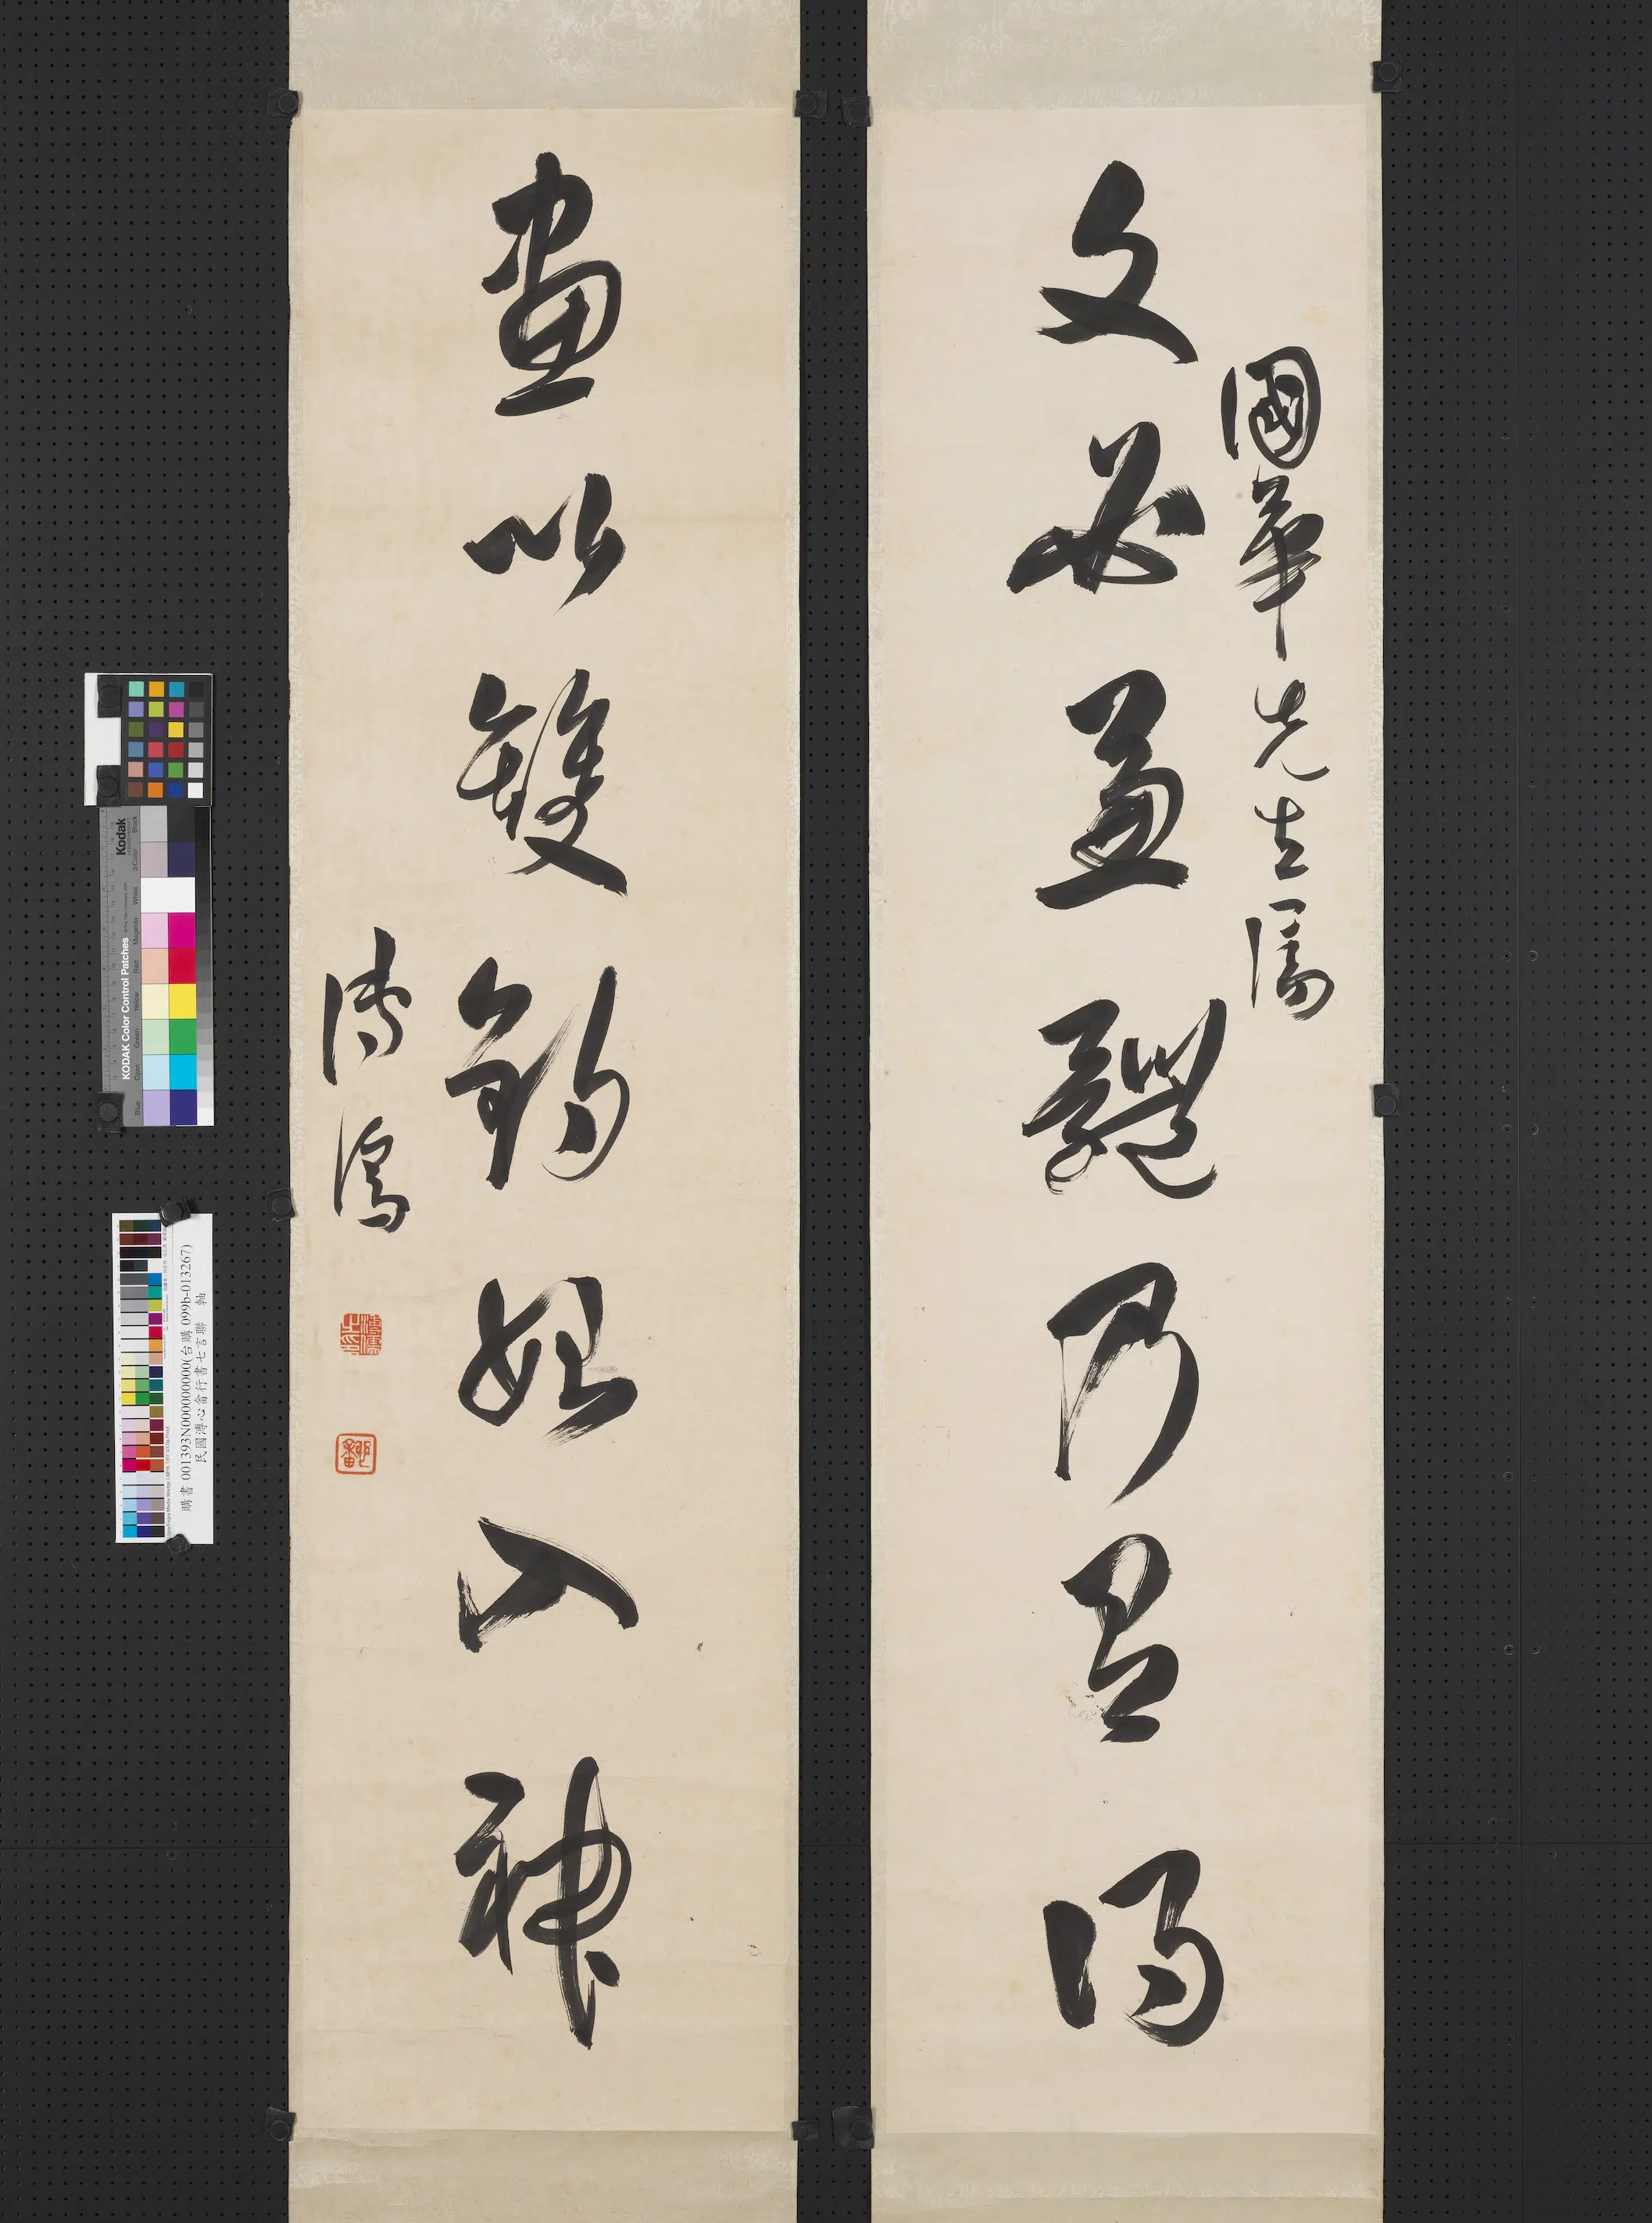 國華先生屬
文必
乃
得
畫以雙鉤始入神
溥儒
溥儒之印
購書 001393N000000000(台購 099b-013267)
民國溥心畬行書七言聯 軸
Kodak
KODAK Color Control Patches
Blue Cyan Green Yellow Red Magenta White 3/Color Black